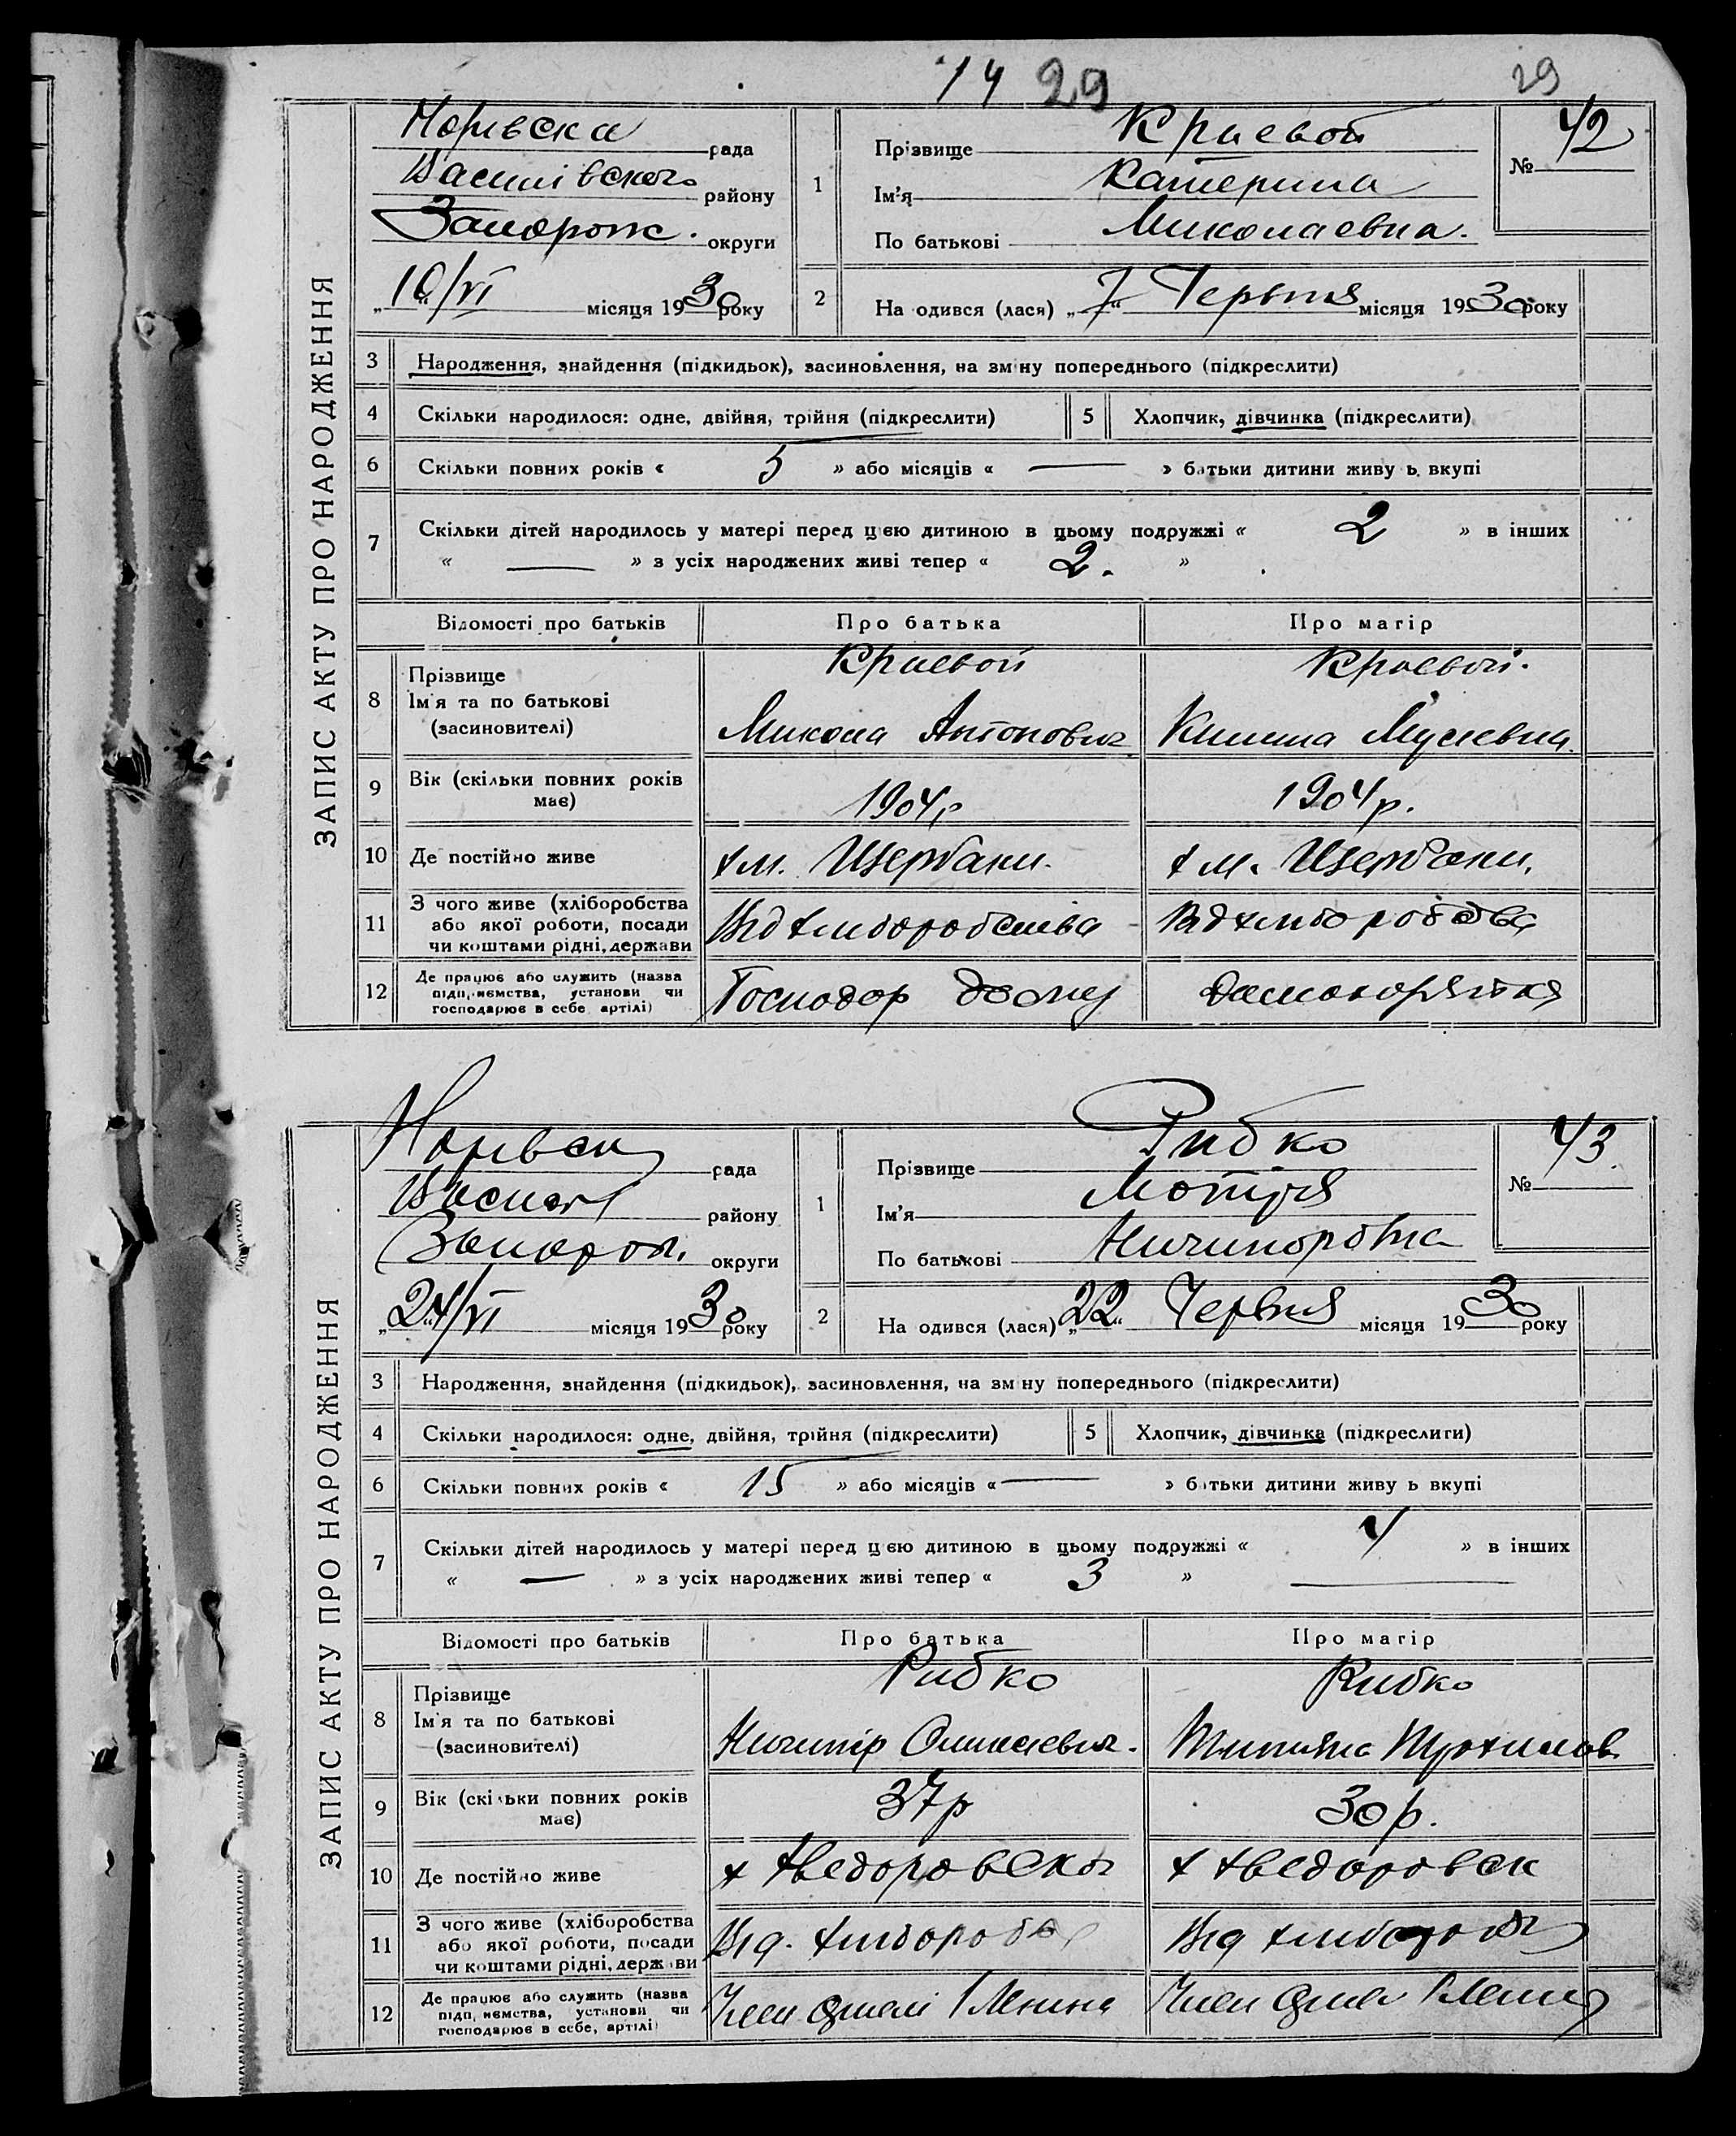 14 29
29
ЗАПИС АКТУ ПРО НАРОДЖЕННЯ
рада
Василівского району
Запорож. округи
10/VI місяця 1930 року
1
Прізвище Краевой
Ім'я Катерина
По батькові Миколаевна.
№ 42
2
На одився (лася) „7“ Червня місяця 1930 року
3 Народження, знайдення (підкидьок), засиновлення, на зм ну попереднього (підкреслити)
4 Скільки народилося: одне, двійня, трійня (підкреслити)
5 Хлопчик, дівчинка (підкреслити)
6 Скільки повних років « 5 » або місяців « — » батьки дитини живу ь вкупі
7 Скільки дітей народилось у матері перед цією дитиною в цьому подружжі « 2 » в інших
« — » з усіх народжених живі тепер « 2. »
Відомості про батьків Про батька Про матір
8 Прізвище
Ім'я та по батькові
(засиновителі)
Краевой
Микола Антонович
Краевой.
Мусіевна
9 Вік (скільки повних років
має)
1904р
1904р.
10 Де постійно живе
х м. Щербаки.
х м. Щербаки.
11 З чого живе (хліборобства
або якої роботи, посади
чи коштами рідні, держави
Від хліборобства
Від хліборобства
12 Де працює або служить (назва
підп, иємства, установи чи
господарює в себе, артілі)
Господар дому
домохозяйка
ЗАПИС АКТУ ПРО НАРОДЖЕННЯ
рада
Васил району
Запорож. округи
„24/VI місяця 1930 року
1
Прізвище Рибко
Ім'я Мотря
По батькові Ничипоровна
№ 43
2
На одився (лася) „22“ Червня місяця 1930 року
3 Народження, знайдення (підкидьок), засиновлення, на зм ну попереднього (підкреслити)
4 Скільки народилося: одне, двійня, трійня (підкреслити)
5 Хлопчик, дівчинка (підкреслити)
6 Скільки повних років « 15 » або місяців « — » батьки дитини живу ь вкупі
7 Скільки дітей народилось у матері перед цією дитиною в цьому подружжі « 4 » в інших
« — » з усіх народжених живі тепер « 3 » —
Відомості про батьків Про батька Про матір
8 Прізвище
Ім'я та по батькові
(засиновителі)
Рибко
Ничипір
Рибко
Трохимов.
9 Вік (скільки повних років
має)
37р
30р.
10 Де постійно живе
х Хведоровска
х Хведоровск
11 З чого живе (хліборобства
або якої роботи, посади
чи коштами рідні, держави
Від. хлібороба
Від хлібороб
12 Де працює або служить (назва
підп, иємства, установи чи
господарює в себе, артілі)
Член артілі Леніна
Член Леніна